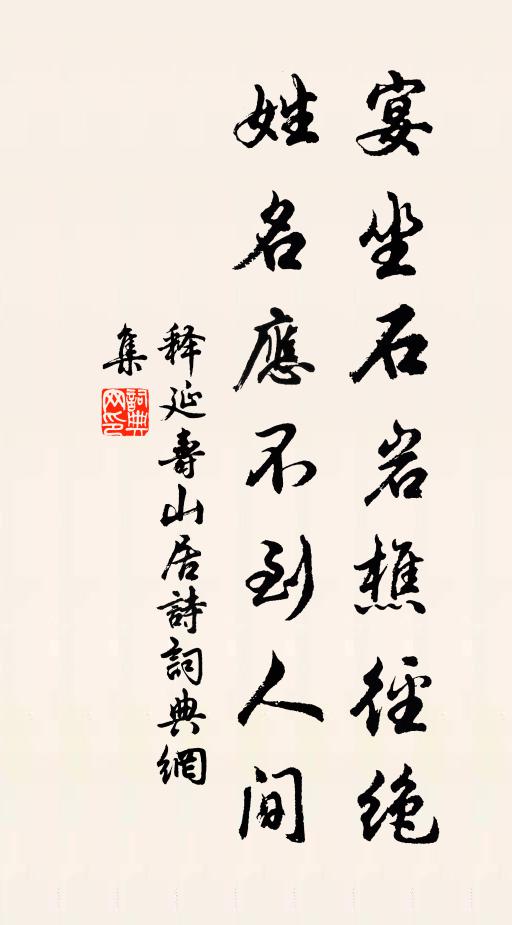 宴坐石岩樵徑絶
姓名應不到人间
释延壽山居詩詞典網
集
詞典
网印